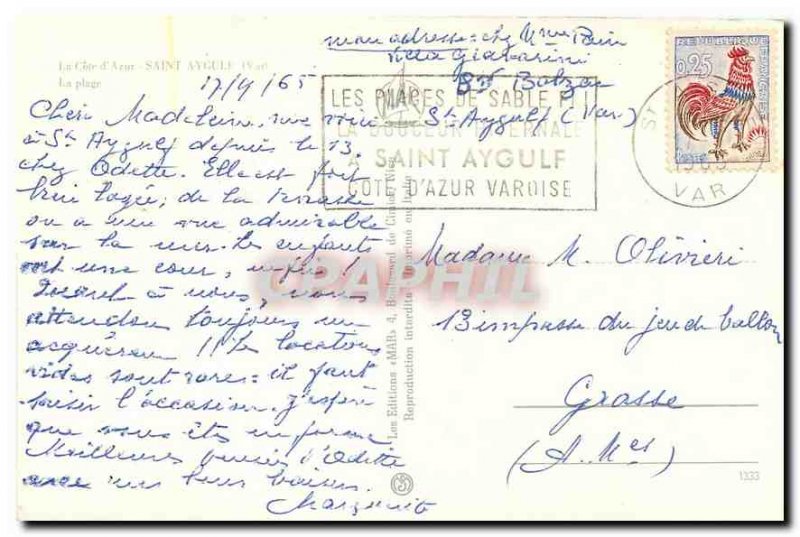 La Côte d'Azur - SAINT AYGULF (Var)
La plage
mon adresse = chez Mme
Villa
Bd Balzac
St Aygulf (Var)
17/9/65
Chère Madeleine,
à St Aygulf depuis le 13,
chez Odette. Elle est fort
bien logée; de la terrasse
on a une vue admirable
sur la mer. Les enfants
ont une cour,
Quant à nous, nous
attendons toujours un
acquéreur !! Les locations
vides sont rares = il faut
saisir l'occasion. J'espère
que vous êtes en forme
Meilleures pensées d'Odette
avec mes bons baisers.
Marguerite
LES PLAGES DE SABLE FIN
LA DOUCEUR HIVERNALE
A SAINT AYGULF
COTE D'AZUR VAROISE
REPUBLIQUE FRANÇAISE
0,25
ST
VAR
Madame M. Olivieri
13 impasse du jeu de ballon
Grasse
(A. Mes)
Les Editions «MAR» 4, Boulevard de Cimiez, Nice
Reproduction interdite - Imprimé en Italie
CPAPHIL
1333